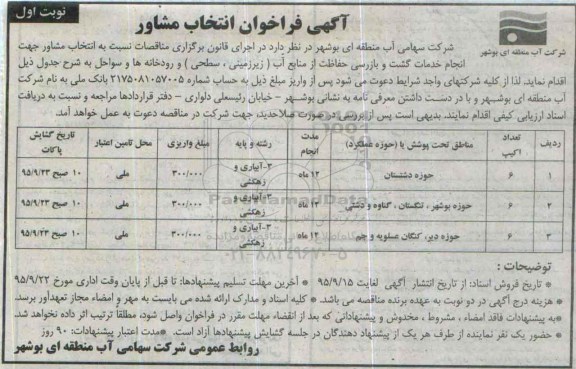 نوبت اول
آگهی فراخوان انتخاب مشاور
شرکت آب منطقه ای بوشهر
شرکت سهامی آب منطقه ای بوشهر در نظر دارد در اجرای قانون برگزاری مناقصات نسبت به انتخاب مشاور جهت
انجام خدمات گشت و بازرسی حفاظت از منابع آب ( زیرزمینی ، سطحی ) و رودخانه ها و سواحل به شرح جدول ذیل
اقدام نماید. لذا از کلیه شرکتهای واجد شرایط دعوت می شود پس از واریز مبلغ ذیل به حساب شماره ۲۱۷۵۰۸۱۰۵۷۰۰۵ بانک ملی به نام شرکت
آب منطقه ای بوشهر و با در دست داشتن معرفی نامه به نشانی بوشهر - خیابان رئیسعلی دلواری - دفتر قراردادها مراجعه و نسبت به دریافت
اسناد ارزیابی کیفی اقدام نمایند. بدیهی است پس از بررسی در صورت صلاحدید، جهت شرکت در مناقصه دعوت به عمل خواهد آمد.
ردیف | تعداد اکیپ | مناطق تحت پوشش یا (حوزه عملکرد) | مدت انجام | رشته و پایه | مبلغ واریزی | محل تامین اعتبار | تاریخ گشایش پاکات
۱ | ۶ | حوزه دشتستان | ۱۲ ماه | ۳-آبیاری و زهکشی | ۳۰۰/۰۰۰ | ملی | ۱۰ صبح ۹۵/۹/۲۳
۲ | ۶ | حوزه بوشهر ، تنگستان ، گناوه و دشتی | ۱۲ ماه | ۳-آبیاری و زهکشی | ۳۰۰/۰۰۰ | ملی | ۱۰ صبح ۹۵/۹/۲۳
۳ | ۶ | حوزه دیر، کنگان عسلویه و جم | ۱۲ ماه | ۳-آبیاری و زهکشی | ۳۰۰/۰۰۰ | ملی | ۱۰ صبح ۹۵/۹/۲۳
توضیحات :
* تاریخ فروش اسناد: از تاریخ انتشار آگهی لغایت ۹۵/۹/۱۵ * آخرین مهلت تسلیم پیشنهادها: تا قبل از پایان وقت اداری مورخ ۹۵/۹/۲۲
* هزینه درج آگهی در دو نوبت به عهده برنده مناقصه می باشد. * کلیه اسناد و مدارک ارائه شده می بایست به مهر و امضاء مجاز تعهدآور برسد.
* به پیشنهادات فاقد امضاء ، مشروط ، مخدوش و پیشنهاداتی که بعد از انقضاء مهلت مقرر در فراخوان واصل شود، مطلقاً ترتیب اثر داده نخواهد شد.
* حضور یک نفر نماینده از طرف هر یک از پیشنهاد دهندگان در جلسه گشایش پیشنهادها آزاد است. * مدت اعتبار پیشنهادات: ۹۰ روز
روابط عمومی شرکت سهامی آب منطقه ای بوشهر
۰۲۱-۸۸۳۴۹۶۷۰-۵